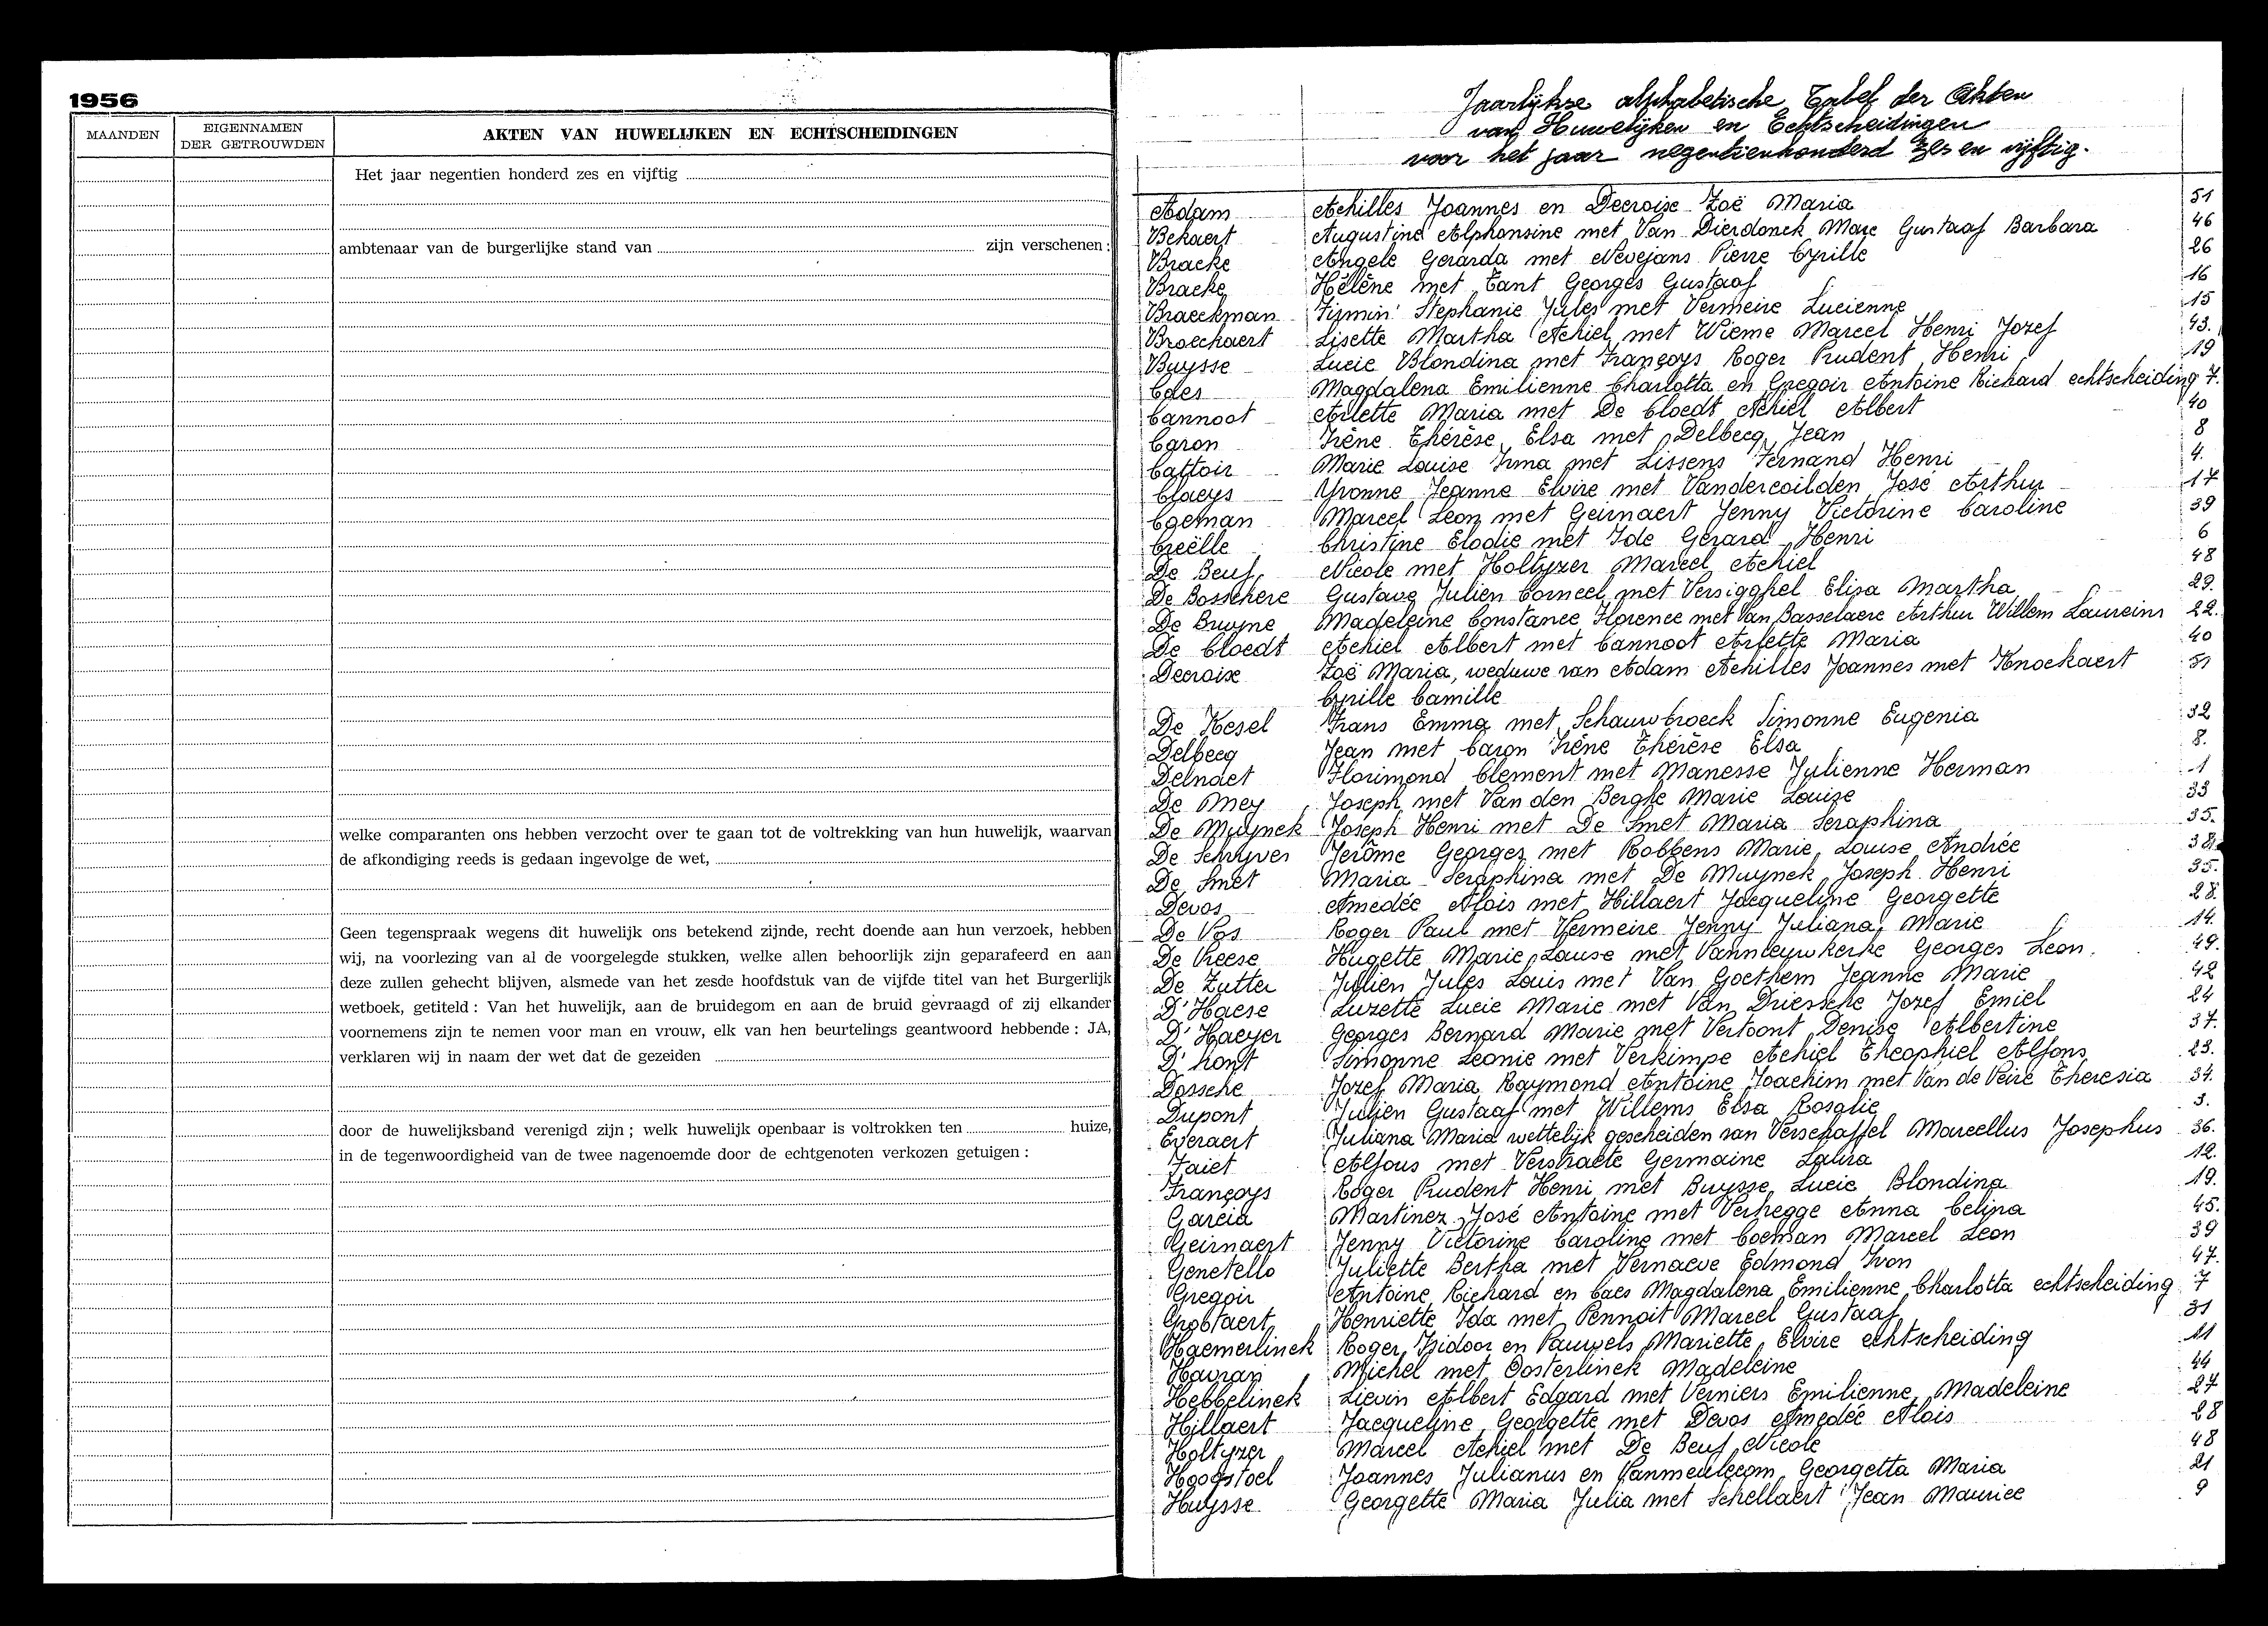 1956
MAANDEN
EIGENNAMEN
DER GETROUWDEN
AKTEN VAN HUWELIJKEN EN ECHTSCHEIDINGEN
Het jaar negentien honderd zes en vijftig
ambtenaar van de burgerlijke stand van zijn verschenen :
welke comparanten ons hebben verzocht over te gaan tot de voltrekking van hun huwelijk, waarvan
de afkondiging reeds is gedaan ingevolge de wet,
Geen tegenspraak wegens dit huwelijk ons betekend zijnde, recht doende aan hun verzoek, hebben
wij, na voorlezing van al de voorgelegde stukken, welke allen behoorlijk zijn geparafeerd en aan
deze zullen gehecht blijven, alsmede van het zesde hoofdstuk van de vijfde titel van het Burgerlijk
wetboek, getiteld : Van het huwelijk, aan de bruidegom en aan de bruid gevraagd of zij elkander
voornemens zijn te nemen voor man en vrouw, elk van hen beurtelings geantwoord hebbende : JA,
verklaren wij in naam der wet dat de gezeiden
door de huwelijksband verenigd zijn ; welk huwelijk openbaar is voltrokken ten huize,
in de tegenwoordigheid van de twee nagenoemde door de echtgenoten verkozen getuigen :
Jaarlijkse alphabetische Tabel der Akten
van Huwelijken en Echtscheidingen
voor het jaar negentienhonderd zes en vijftig.
Adam Achilles Joannes en Decroix Zoë Maria 51
Bekaert Augustine Alphonsine met Van Dierdonck Marc Gustaaf Barbara 46
Bracke Angele Gerarda met Nevejans Pierre Cyrille 26
Bracke Hélène met Tant Georges Gustaaf 16
Braeckman Firmin Stephanie Jules met Vermeire Lucienne 15
Broeckaert Lisette Martha Achiel met Wieme Marcel Henri Jozef 43.
Buysse Lucie Blondina met Françoys Roger Prudent Henri 19
Caes Magdalena Emilienne Charlotta en Gregoir Antoine Richard echtscheiding 7.
Cannoot Arlette Maria met De Cloedt Achiel Albert 40
Caron Irène Thérèse Elsa met Delbecq Jean 8
Cattoir Marie Louise Irma met Lissens Fernand Henri 4.
Claeys Yvonne Jeanne Elvire met Vandercoilden José Arthur 17
Coeman Marcel Leon met Geirnaert Jenny Victorine Caroline 39
Creëlle Christine Elodie met Ide Gerard Henri 6
De Beuf Nicole met Holtyzer Marcel Achiel 48
De Bosschere Gustave Julien Corneel met Versigghel Elisa Martha 29.
De Bruyne Madeleine Constance Florence met Van Basselaere Arthur Willem Laureins 22.
De Cloedt Achiel Albert met Cannoot Arlette Maria 40
Decroix Zoë Maria, weduwe van Adam Achilles Joannes met Knockaert 51
Cyrille Camille
De Kesel Frans Emma met Schauwbroeck Simonne Eugenia 32
Delbecq Jean met Caron Irène Thérèse Elsa 8.
Delnaet Florimond Clement met Manesse Julienne Herman 1
De Mey Joseph met Van den Berghe Marie Louise 33
De Muynck Joseph Henri met De Smet Maria Seraphina 35.
De Schryver Jerôme Georges met Robbens Marie Louise Andrée 38
De Smet Maria Seraphina met De Muynck Joseph Henri 35.
Devos Amedée Alois met Hillaert Jacqueline Georgette 28.
De Vos Roger Paul met Vermeire Jenny Juliana Marie 14.
De Vreese Hugette Marie Louise met Vannieuwkerke Georges Leon. 49.
De Zutter Julien Jules Louis met Van Goethem Jeanne Marie 42
D'Haese Suzette Lucie Marie met Van Driessche Jozef Emiel 24
D'Haeyer Georges Bernard Marie met Vertont Denise Albertine 37.
D'hont Simonne Leonie met Verkimpe Achiel Theophiel Alfons 23.
Dossche Jozef Maria Raymond Antoine Joachim met Van de Veire Theresia 34.
Dupont Julien Gustaaf met Willems Elsa Rosalie 3.
Everaert Juliana Maria wettelijk gescheiden van Verschaffel Marcellus Josephus 36.
Faict Alfons met Verstraete Germaine Laura 12.
Françoys Roger Prudent Henri met Buysse Lucie Blondina 19.
Garcia Martinez José Antoine met Verhegge Anna Celina 45.
Geirnaert Jenny Victorine Caroline met Coeman Marcel Leon 39
Genetello Juliette Bertha met Vernaeve Edmond Ivon 47.
Gregoir Antoine Richard en Caes Magdalena Emilienne Charlotta echtscheiding 7
Grobtaert Henriette Ida met Pennoit Marcel Gustaaf 31
Haemerlinck Roger Isidoor en Pauwels Mariette Elvire echtscheiding 11
Havran Michel met Oosterlinck Madeleine 44
Hebbelinck Lievin Albert Edgard met Verniers Emilienne Madeleine 27
Hillaert Jacqueline Georgette met Devos Amedée Alois 28
Holtyzer Marcel Achiel met De Beuf Nicole 48
Hoogstoel Joannes Julianus en Vanmeulecom Georgetta Maria 21
Huysse Georgette Maria Julia met Schellaert Jean Maurice 9